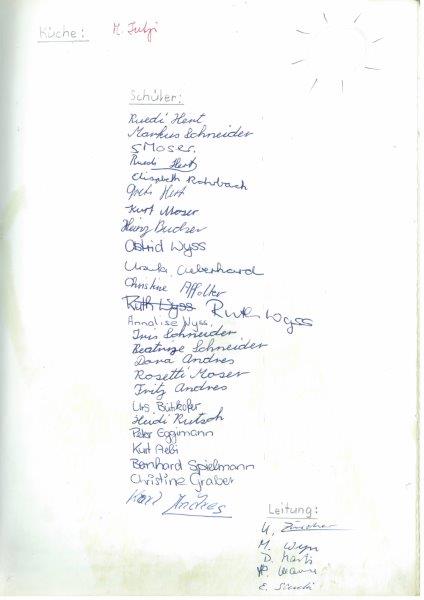 Küche: M. Jutzi
Schüler:
Ruedi Hert
Markus Schneider
S Moser.
Ruedi Hert
Elisabeth Rohrbach
Greti Hert
Kurt Moser
Heinz Bucher
Astrid Wyss
Ursula Aeberhard
Christine Affolter
Ruth Wyss Ruth Wyss
Annalise Wyss.
Iris Schneider
Beatrice Schneider
Dora Andres
Rosetti Moser
Fritz Andres
Urs Bühlhofer
Heidi Rutsch
Peter Eggimann
Kurt Aebi
Bernhard Spielmann
Christine Graber
Karl Andres
Leitung:
U. Zürcher
M. Wyss
D. Marti
E.